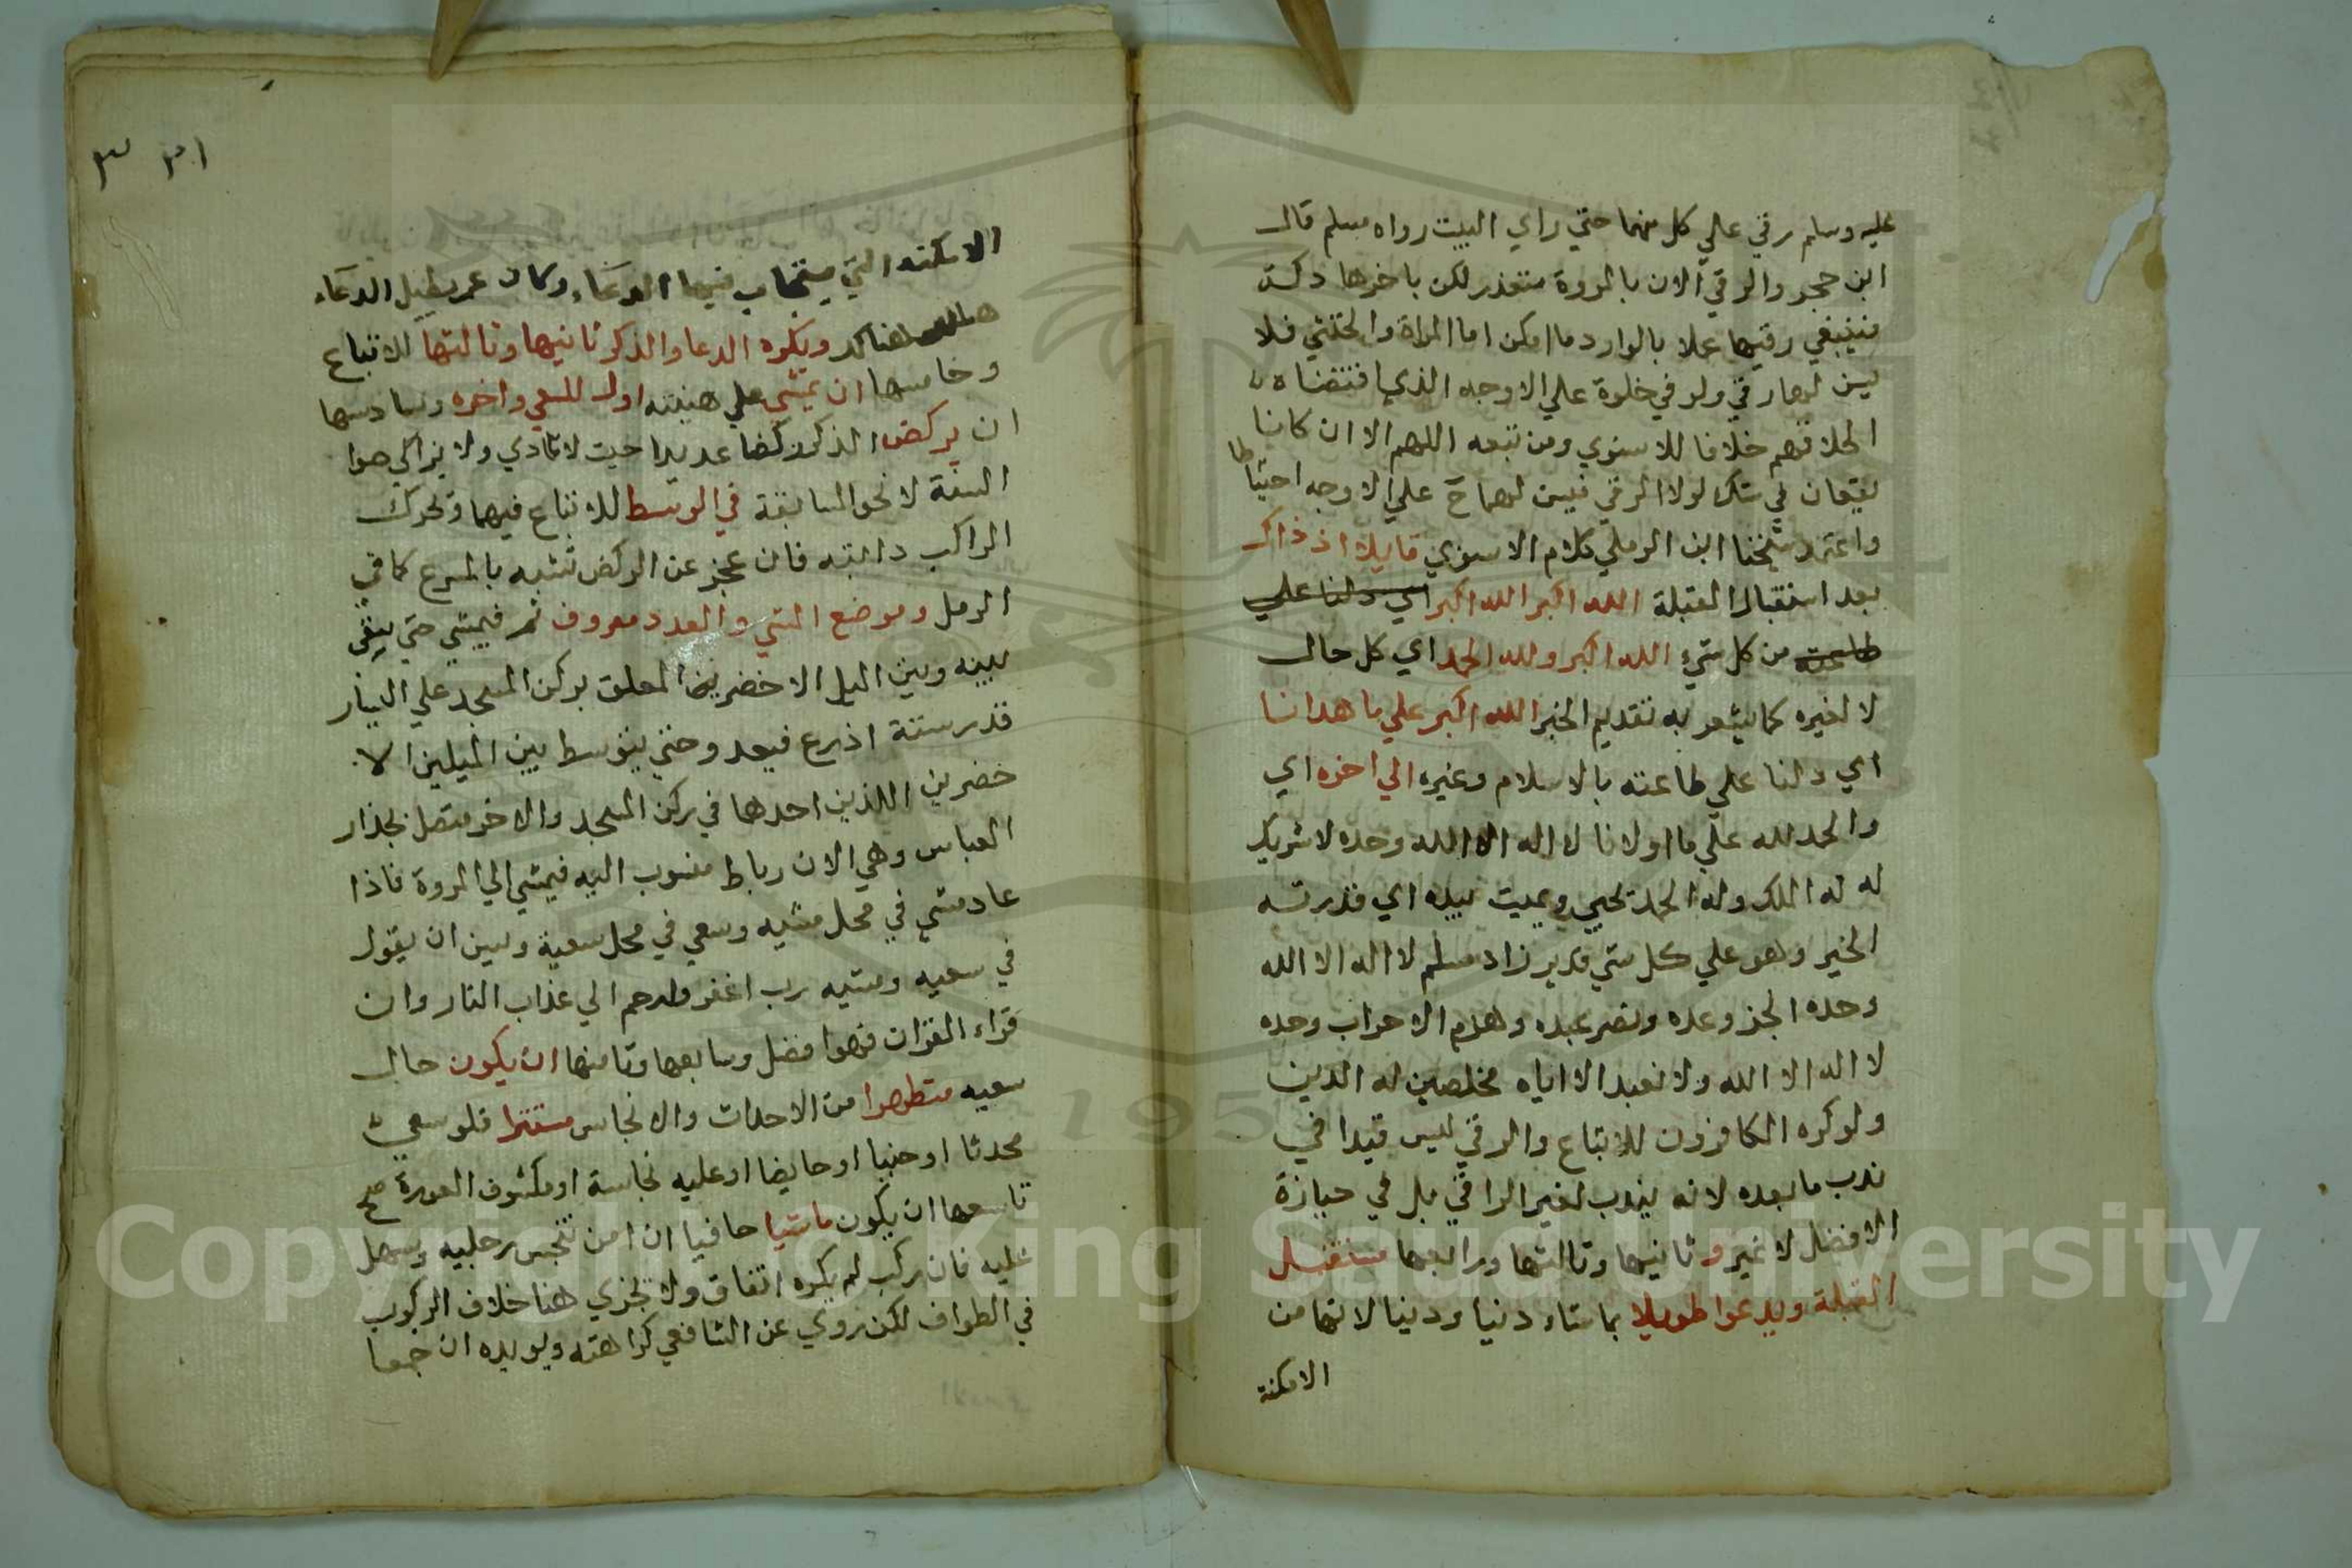 عليه وسلم رقي علي كل منهما حتي راي البيت رواه مسلم قال
ابن حجر والرقي الان بالمروة متعذر لكن باخرها دكة
فينبغي رقيها عملا بالوارد ما امكن اما المراة والخنثي فلا
يسن لهما رقي ولو في خلوة علي الاوجه الذي اقتضاه
اطلاقهم خلافا للاسنوي ومن تبعه اللهم الا ان كانا
يقعان في شك لولا الرقي فيسن لهما ح علي الاوجه احتياطا
واعتمد شيخنا ابن الرملي كلام الاسنوي قايلا اذ ذاك
بعد استقبال القبلة الله اكبر الله اكبر اي دلنا علي
طاعته من كل شيء الله اكبر ولله الحمد اي كل حال
لا لغيره كما يشعر به تقديم الخبر الله اكبر علي ما هدانا
اي دلنا علي طاعته بالاسلام وغيره الي اخره اي
والحمد لله علي ما اولانا لا اله الا الله وحده لا شريك
له له الملك وله الحمد يحيي ويميت بيده اي قدرته
الخير وهو علي كل شي قدير زاد مسلم لا اله الا الله
وحده انجز وعده ونصر عبده وهزم الاحزاب وحده
لا اله الا الله ولا نعبد الا اياه مخلصين له الدين
ولو كره الكافرون للاتباع والرقي ليس قيدا في
ندب ما بعده لانه يندب لغير الراقي بل في حيازة
الافضل لا غير وثانيها وثالثها ورابعها مستقبل
القبلة ويدعوا طويلا بما شاء دنيا ودينا لانها من
الامكنة
٣١ ٣
الامكنة التي يستجاب فيها الدعاء وكان عمر يطيل الدعاء
هناك ويكره الدعا والذكر ثانيها وثالثها للاتباع
وخامسها ان يمشي علي هينته اول السعي واخره وسادسها
ان يركض الذكر ركضا عديدا حيث لا تاذي ولا يزاكي صوا
السنة لا نحو المسابقة في الوسط للاتباع فيهما وتحرك
الراكب دابته فان عجز عن الركض تشبه بالمسرع كما في
الرمل وموضع المشي والعدد معروف ثم فيمشي حتي يبقي
بينه وبين الميل الاخضر المعلق بركن المسجد علي اليسار
قدر ستة اذرع فيعد وحتي يتوسط بين الميلين الا
خضرين اللذين احدها في ركن المسجد والاخر متصل بجدار
العباس وهي الان رباط منسوب اليه فيمشي الي المروة فاذا
عاد مشي في محل مشيه وسعي في محل سعيه وسن ان يقول
في سعيه ومشيه رب اغفر وارحم الي عذاب النار وان
قراء القران فهوا فضل وسابعها وثامنها ان يكون حال
سعيه متطهرا من الاحداث والانجاس مستترا فلو سعي
محدثا او جنبا او حايضا او عليه نجاسة او مكشوف العورة صح
تاسعها ان يكون ماشيا حافيا ان امن تنجس رجليه وسهل
عليه فان ركب لم يكره اتفاق ولا تجزي هنا خلاف الركوب
في الطواف لكن روي عن الشافعي كراهته ويويده ان جمعا
Copyright © King Saud University
195